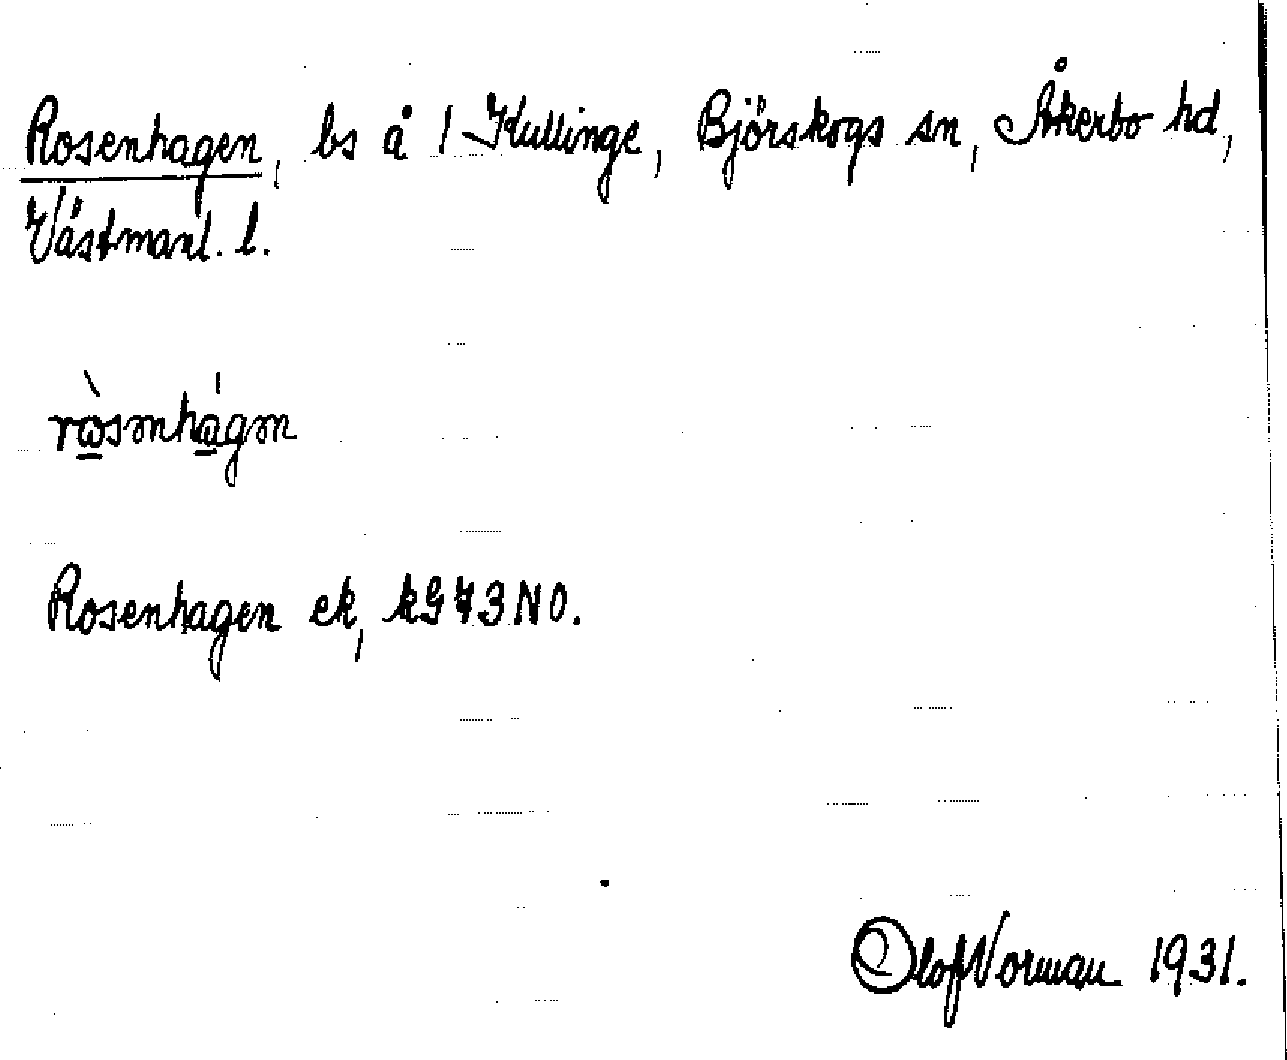 Rosenhagen, bs å 1 Kullinge, Björskogs sn, Åkerbo hd,
Västmanl. l.
Rosenhagen ek, kG 73 NO.
Olof Norman 1931.